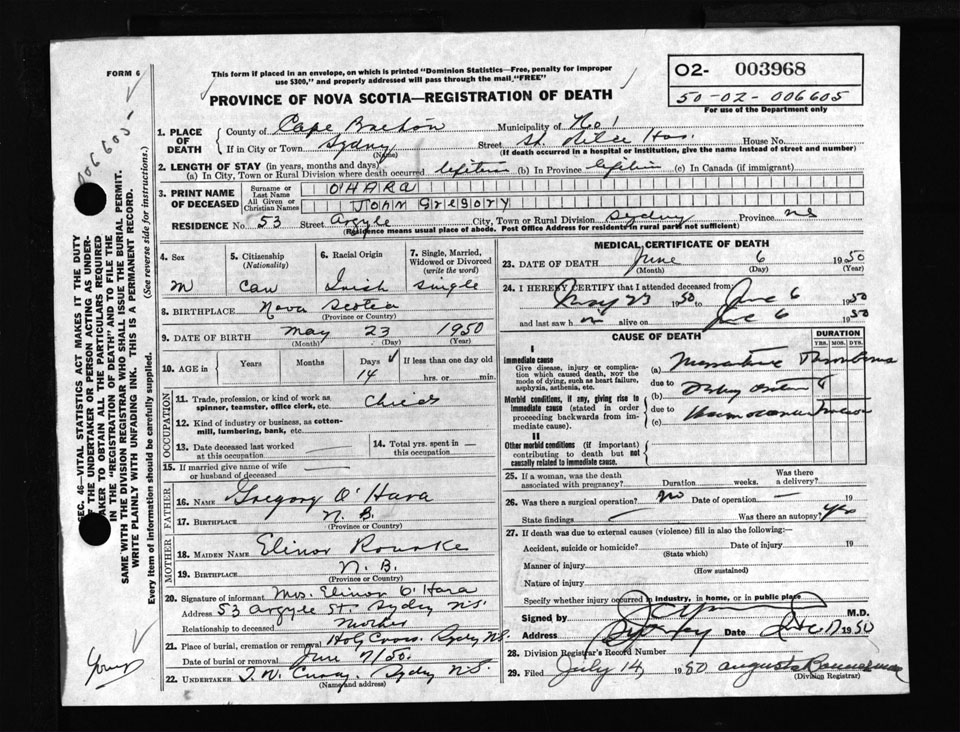 FORM 6
This form if placed in an envelope, on which is printed "Dominion Statistics—Free, penalty for improper
use $300," and properly addressed will pass through the mail, "FREE"
PROVINCE OF NOVA SCOTIA—REGISTRATION OF DEATH
O2- 003968
50-02-006605
For use of the Department only
006605-
SEC. 46—VITAL STATISTICS ACT MAKES IT THE DUTY
OF THE UNDERTAKER OR PERSON ACTING AS UNDER-
TAKER TO OBTAIN ALL THE PARTICULARS REQUIRED
IN THE "REGISTRATION OF DEATH" AND TO FILE THE
SAME WITH THE DIVISION REGISTRAR WHO SHALL ISSUE THE BURIAL PERMIT.
WRITE PLAINLY WITH UNFADING INK. THIS IS A PERMANENT RECORD.
Every item of information should be carefully supplied. (See reverse side for instructions.)
1. PLACE OF DEATH
County of Cape Breton Municipality of
If in City or Town Sydney Street St. Rita Hos. House No.
(Name) (If death occurred in a hospital or institution, give the name instead of street and number)
2. LENGTH OF STAY (in years, months and days)
(a) In City, Town or Rural Division where death occurred lifetime (b) In Province lifetime (c) In Canada (if immigrant)
3. PRINT NAME OF DECEASED
Surname or Last Name O'HARA
All Given or Christian Names JOHN GREGORY
RESIDENCE No. 53 Street Argyle City, Town or Rural Division Sydney Province NS
(Residence means usual place of abode. Post Office Address for residents in rural parts not sufficient)
4. Sex M
5. Citizenship (Nationality) Can
6. Racial Origin Irish
7. Single, Married, Widowed or Divorced (write the word) single
8. BIRTHPLACE Nova Scotia
(Province or Country)
9. DATE OF BIRTH May 23 1950
(Month) (Day) (Year)
10. AGE in Years Months Days 14 If less than one day old hrs. or min.
OCCUPATION
11. Trade, profession, or kind of work as spinner, teamster, office clerk, etc. Child
12. Kind of industry or business, as cotten-mill, lumbering, bank, etc.
13. Date deceased last worked at this occupation
14. Total yrs. spent in this occupation
15. If married give name of wife or husband of deceased
FATHER
16. NAME Gregory O'Hara
17. BIRTHPLACE N. B.
(Province or Country)
MOTHER
18. MAIDEN NAME Elinor Rourke
19. BIRTHPLACE N. B.
(Province or Country)
20. Signature of informant Mrs. Elinor O'Hara
Address 53 Argyle St. Sydney N.S.
Relationship to deceased Mother
21. Place of burial, cremation or removal Holy Cross Sydney N.S.
Date of burial or removal June 7/50.
22. UNDERTAKER T. W. Curry, Sydney N.S.
(Name and address)
MEDICAL CERTIFICATE OF DEATH
23. DATE OF DEATH June 6 1950
(Month) (Day) (Year)
24. I HEREBY CERTIFY that I attended deceased from:
May 23 1950 to June 6 1950
and last saw h im alive on June 6 1950
CAUSE OF DEATH
DURATION
YRS. MOS. DYS.
I
Immediate cause
Give disease, injury or complication which caused death, NOT the mode of dying, such as heart failure, asphyxia, asthenia, etc.
(a) Thrombosis
due to
Morbid conditions, if any, giving rise to immediate cause (stated in order proceeding backwards from immediate cause).
(b)
due to
(c)
II
Other morbid conditions (if important) contributing to death but not causally related to immediate cause.
25. If a woman, was the death associated with pregnancy? Duration weeks. Was there a delivery?
26. Was there a surgical operation? No Date of operation — 19
State findings — Was there an autopsy? Yes
27. If death was due to external causes (violence) fill in also the following:—
Accident, suicide or homicide? Date of injury 19
(State which)
Manner of injury
(How sustained)
Nature of injury
Specify whether injury occurred in industry, in home, or in public place
Signed by M.D.
Address Sydney Date 1950
28. Division Registrar's Record Number
29. Filed July 14, 1950 Augusta Bannerman
(Division Registrar)